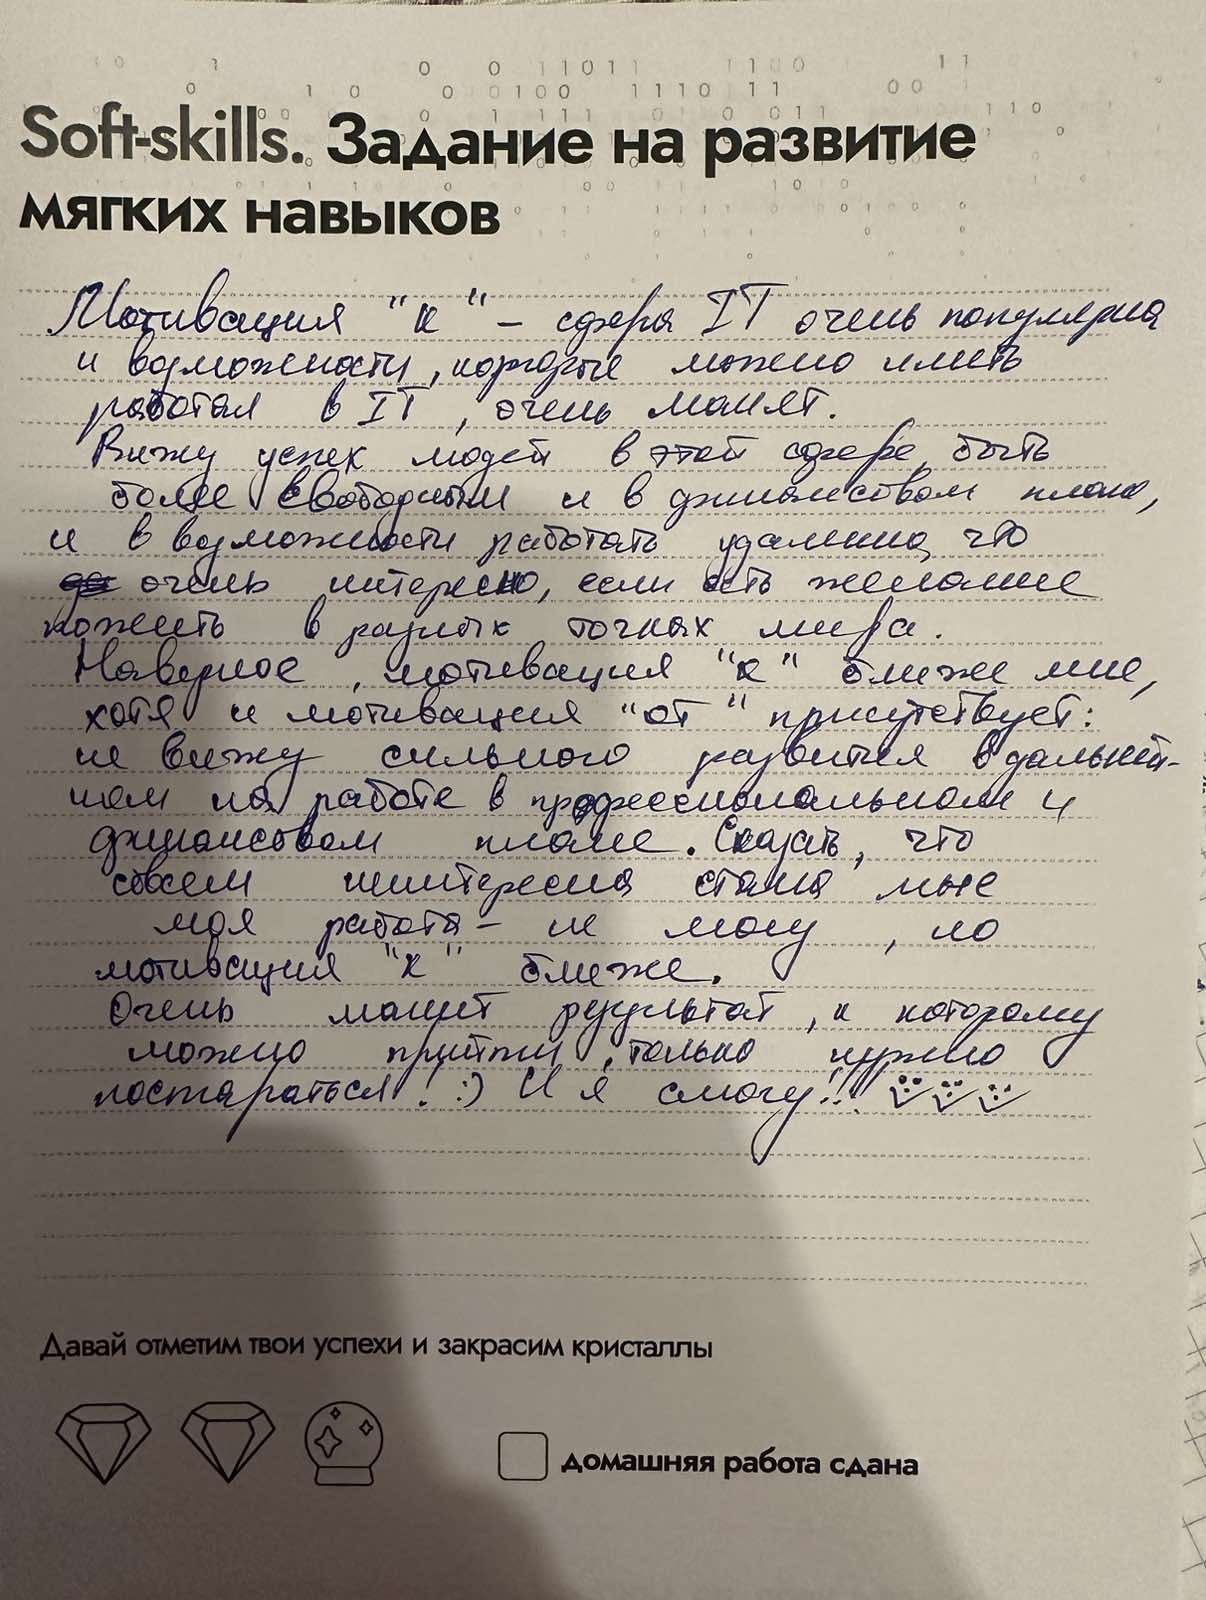 Soft-skills. Задание на развитие
мягких навыков
Мотивация "к" – сфера IT очень популярна
и возможности, которые можно иметь
работая в IT, очень манят.
Вижу успех людей в этой сфере, быть
более свободным и в финансовом плане,
и в возможности работать удаленно, что
очень интересно, если есть желание
пожить в разных точках мира.
Наверное, мотивация "к" ближе мне,
хотя и мотивация "от" присутствует:
не вижу сильного развития в дальней-
шем на работе в профессиональном и
финансовом плане. Сказать, что
совсем неинтересна стала мне
моя работа – не могу, но
мотивация "к" ближе.
Очень манит результат, к которому
можно прийти, только нужно
постараться! :) И я смогу!!!
Давай отметим твои успехи и закрасим кристаллы
домашняя работа сдана